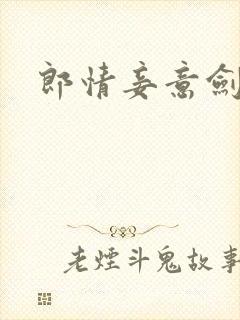 郎情妾意劍
老煙斗鬼故事